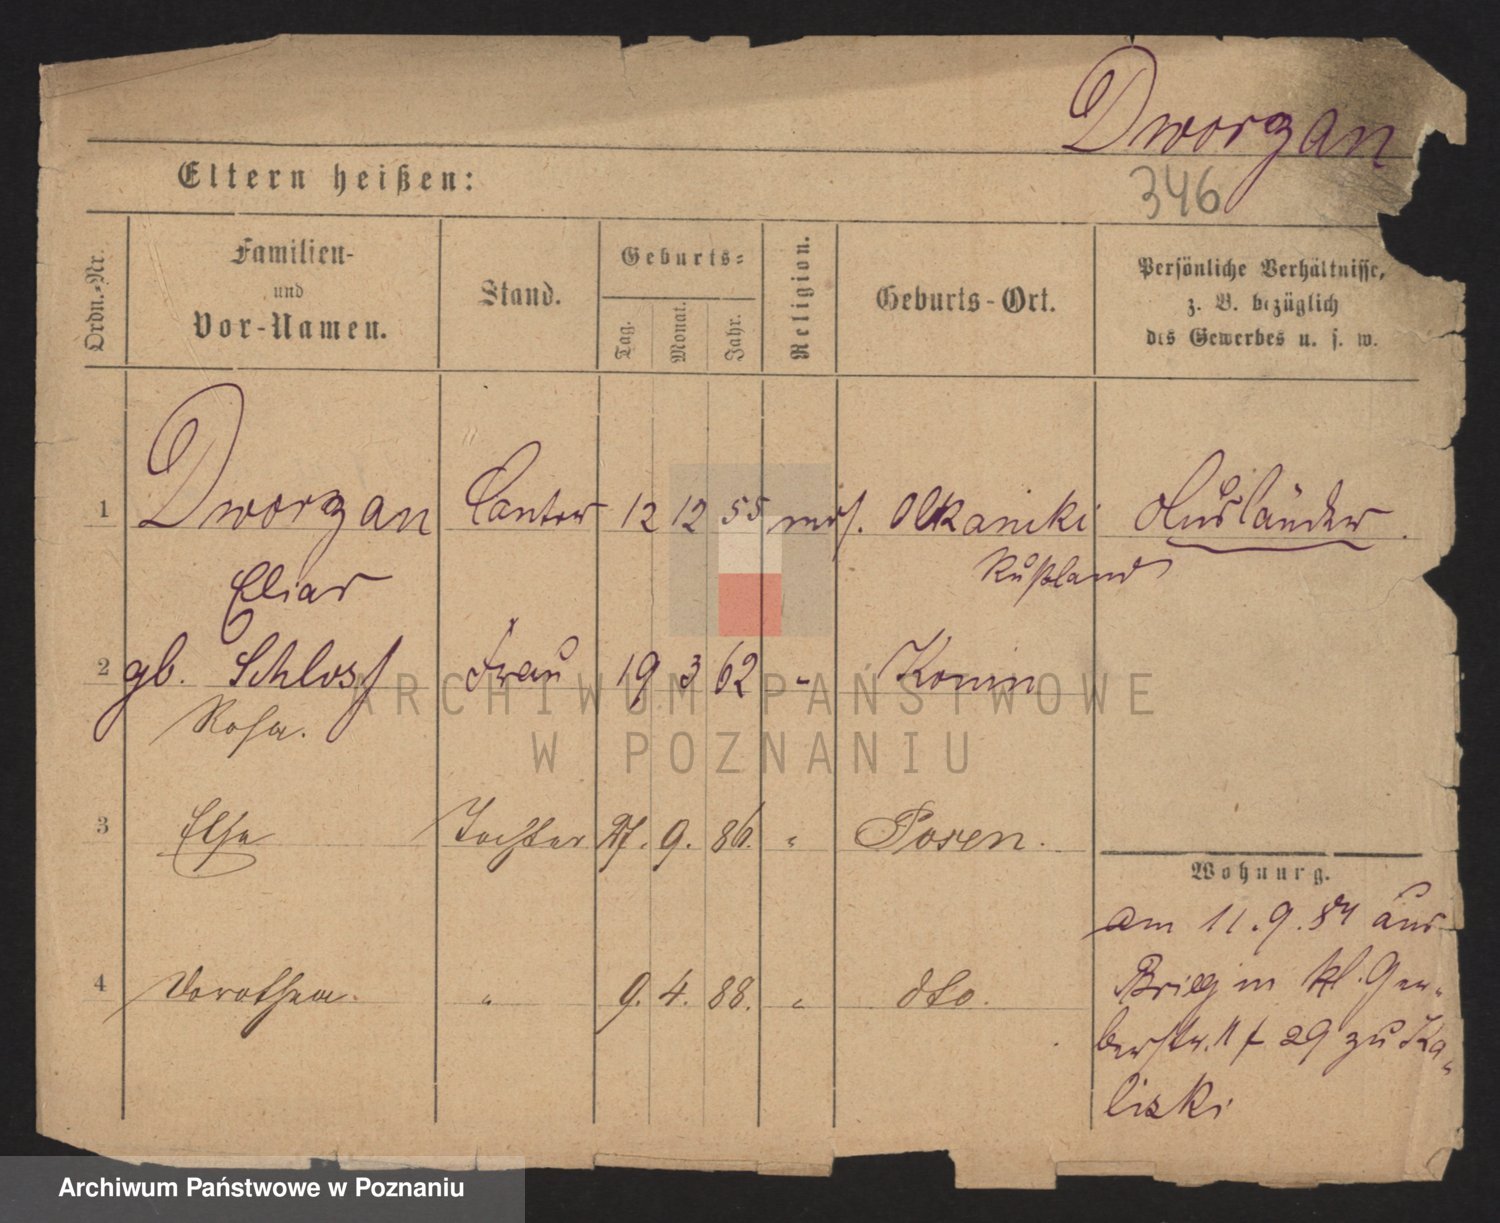 Dworzan
346
Eltern heißen:
Ordn.-Nr.
Familien-
und
Vor-Namen.
Stand.
Geburts-
Tag.
Monat.
Jahr.
Religion.
Geburts-Ort.
Persönliche Verhältnisse,
z. B. bezüglich
des Gewerbes u. s. w.
1 Dworzan Cantor 12 12 55 mos. Olkaniki Ausländer.
Elias Rußland
2 gb. Schloss Frau 19 3 62 " Konin
Rosa.
3 Else Tochter 27. 9. 86. " Posen.
4 Dorothea. " 9. 4. 88. " dto.
Wohnung.
am 11. 9. 84 aus
Brieg in kl. Ger-
berstr. 29 zu Ka-
liski
ARCHIWUM PAŃSTWOWE
W POZNANIU
Archiwum Państwowe w Poznaniu